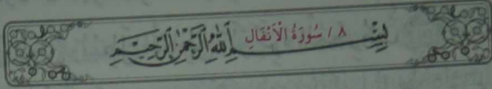 ٨ / سُورَةُ الْأَنْفَالِ
بِسْمِ اللَّهِ الرَّحْمَٰنِ الرَّحِيمِ